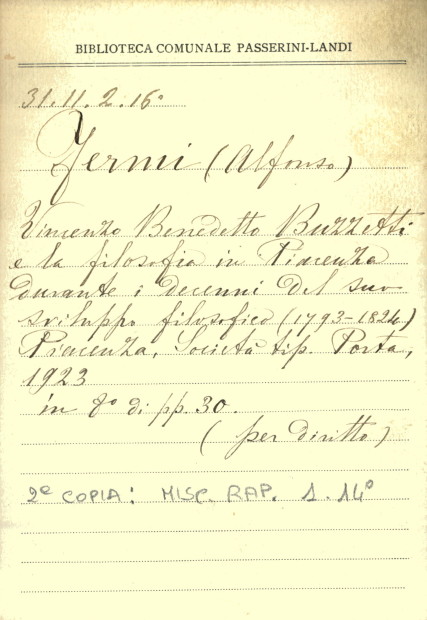 BIBLIOTECA COMUNALE PASSERINI-LANDI
31.11.2.16°
Fermi (Alfonso)
Vincenzo Benedetto Buzzetti
e la filosofia in Piacenza
durante i decenni del suo
sviluppo filosofico (1793-1824)
Piacenza, Società tip. Porta,
1923
in 8° di pp. 30.
(per diritto)
2ª COPIA: MISC. RAP. 1. 14°